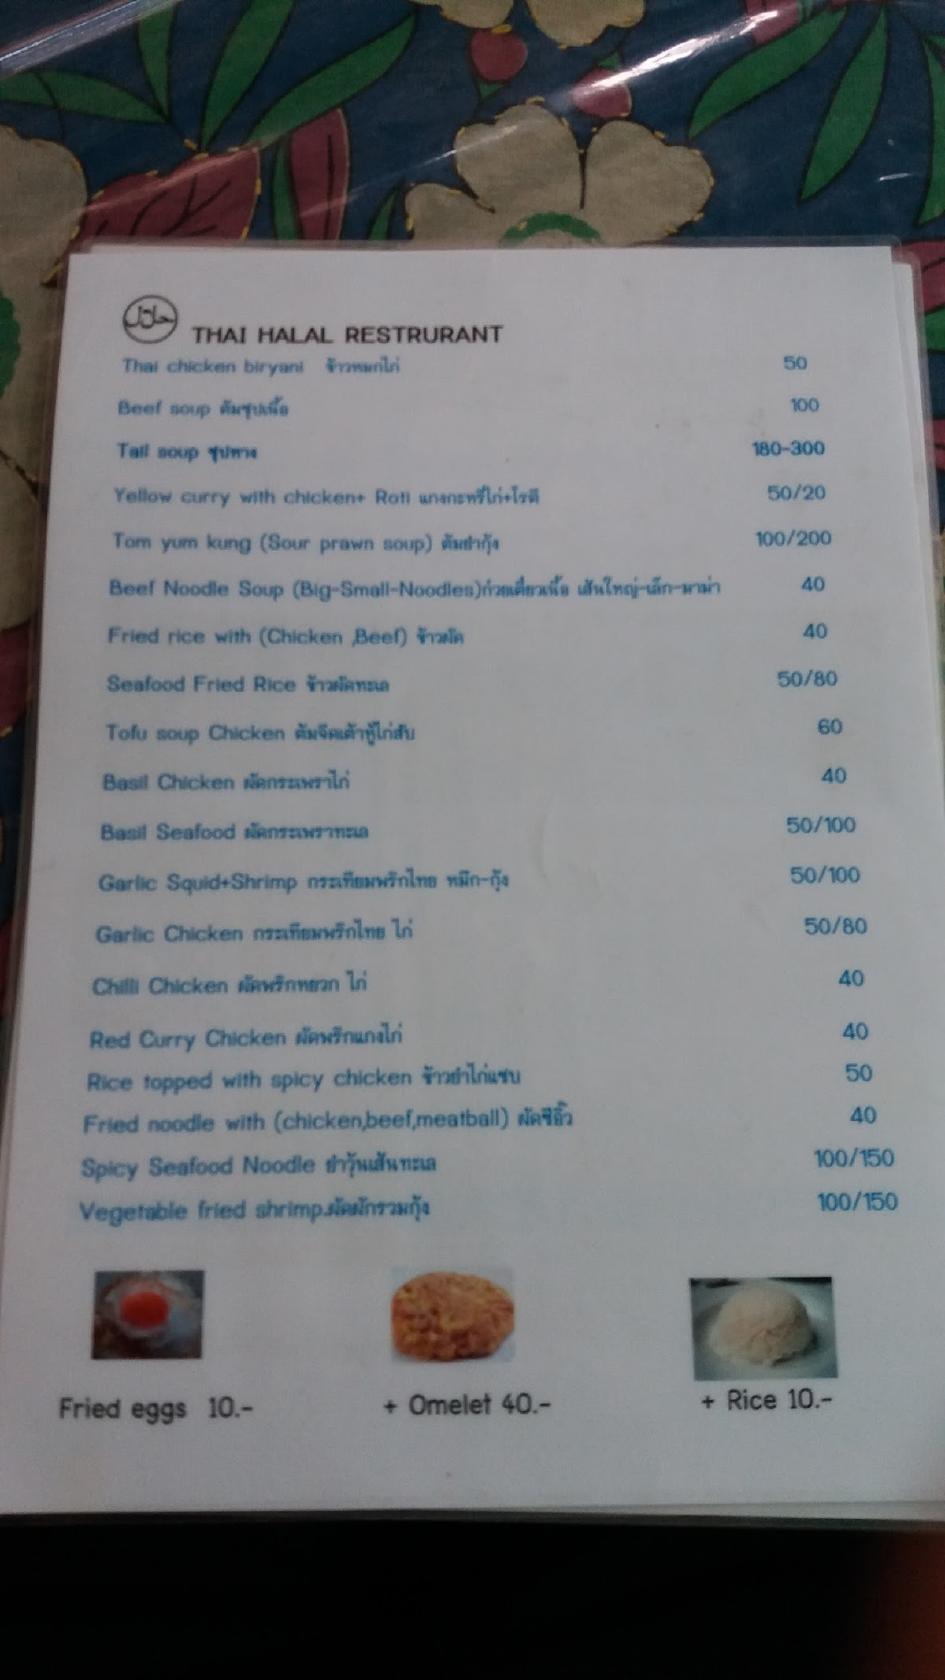 حلال
THAI HALAL RESTRURANT
Thai chicken biryani ข้าวหมกไก่ 50
Beef soup ต้มซุปเนื้อ 100
Tail soup ซุปหาง 180-300
Yellow curry with chicken+ Roti แกงกะหรี่ไก่+โรตี 50/20
Tom yum kung (Sour prawn soup) ต้มยำกุ้ง 100/200
Beef Noodle Soup (Big-Small-Noodles)ก๋วยเตี่ยวเนื้อ เส้นใหญ่-เล็ก-มาม่า 40
Fried rice with (Chicken ,Beef) ข้าวผัด 40
Seafood Fried Rice ข้าวผัดทะเล 50/80
Tofu soup Chicken ต้มจืดเต้าหู้ไก่สับ 60
Basil Chicken ผัดกระเพราไก่ 40
Basil Seafood ผัดกระเพราทะเล 50/100
Garlic Squid+Shrimp กระเทียมพริกไทย หมึก-กุ้ง 50/100
Garlic Chicken กระเทียมพริกไทย ไก่ 50/80
Chilli Chicken ผัดพริกหยวก ไก่ 40
Red Curry Chicken ผัดพริกแกงไก่ 40
Rice topped with spicy chicken ข้าวยำไก่แซบ 50
Fried noodle with (chicken,beef,meatball) ผัดซีอิ๊ว 40
Spicy Seafood Noodle ยำวุ้นเส้นทะเล 100/150
Vegetable fried shrimp.ผัดผักรวมกุ้ง 100/150
Fried eggs 10.- + Omelet 40.- + Rice 10.-